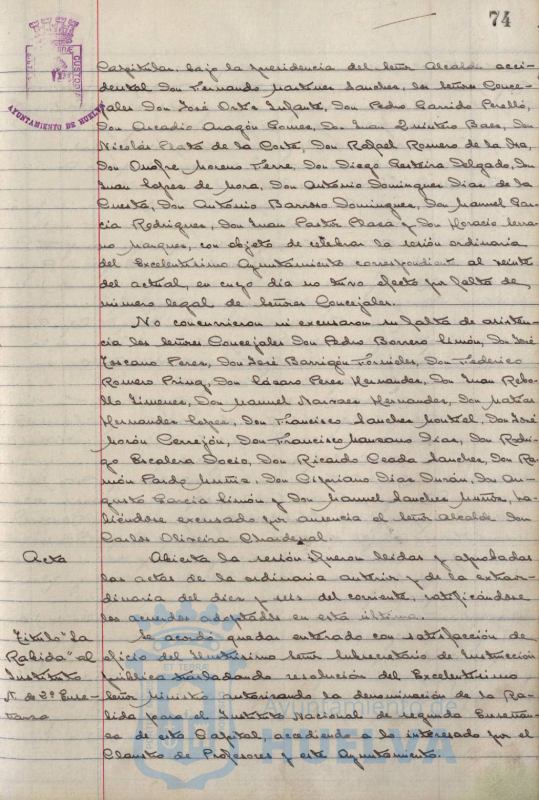 74
CUSTODIA
AYUNTAMIENTO DE HUELVA
Capitular, bajo la presidencia del Señor Alcalde acci-
dental Don Fernando Martinez Sanchez, los Señores Conce-
jales Don José Ortiz Infante, Don Pedro Garrido Perelló,
Don Arcadio Aragón Gomez, Don Juan Quintero Baez, Don
Nicolás Prata de la Corte, Don Rafael Romero de la
Don Onofre Moreno Ferre, Don Diego Delgado, Don
Juan Lopez de Mora, Don António Dominguez Diaz de la
Cuesta, Don António Barroso Dominguez, Don Manuel Gar-
cia Rodriguez, Don Juan Pastor Plaza y Don Horacio Serra-
no Marquez, con objeto de celebrar la sesión ordinaria
del Excelentísimo Ayuntamiento correspondiente al veinte
del actual, en cuyo dia no tuvo efecto por falta de
número legal de Señores Concejales.
No concurrieron ni excusaron su falta de asisten-
cia los Señores Concejales Don Pedro Borrero Limón, Don José
Toscano Perez, Don José Barrigón Fornieles, Don Federico
Romero Don Lázaro Perez Hernandez, Don Juan Rebo-
llo Jimenez, Don Manuel Narvaez Hernandez, Don Matias
Hernandez Lopez, Don Francisco Sanchez Montiel, Don José
Morón Cerrejón, Don Francisco Manzano Diaz, Don Rodri-
go Escalera Don Ricardo Ceada Sanchez, Don Ra-
món Pardo Don Cipriano Diaz Durán, Don Au-
gusto Garcia Limón y Don Manuel Sanchez Muñoz, ha-
biéndose excusado por ausencia el Señor Alcalde Don
Carlos Oliveira
Acta
Abierta la sesión fueron leidas y aprobadas
las actas de la ordinaria anterior y de la extraor-
dinaria del diez y seis del corriente, ratificándose
los acuerdos adoptados en esta última.
Titulo "la
Rabida" al
Instituto
N. de 2ª Ense-
ñanza
Se acordó quedar enterado con satisfacción de
oficio del Ilustrísimo Señor Subsecretario de Instrucción
pública trasladando resolución del Excelentísimo
Señor Ministro autorizando la denominación de la Ra-
bida para el Instituto Nacional de segunda Enseñan-
za de esta Capital, accediendo a lo interesado por el
Claustro de Profesores y este Ayuntamiento.
ET TERRÆ
Ayuntamiento de
HUELVA